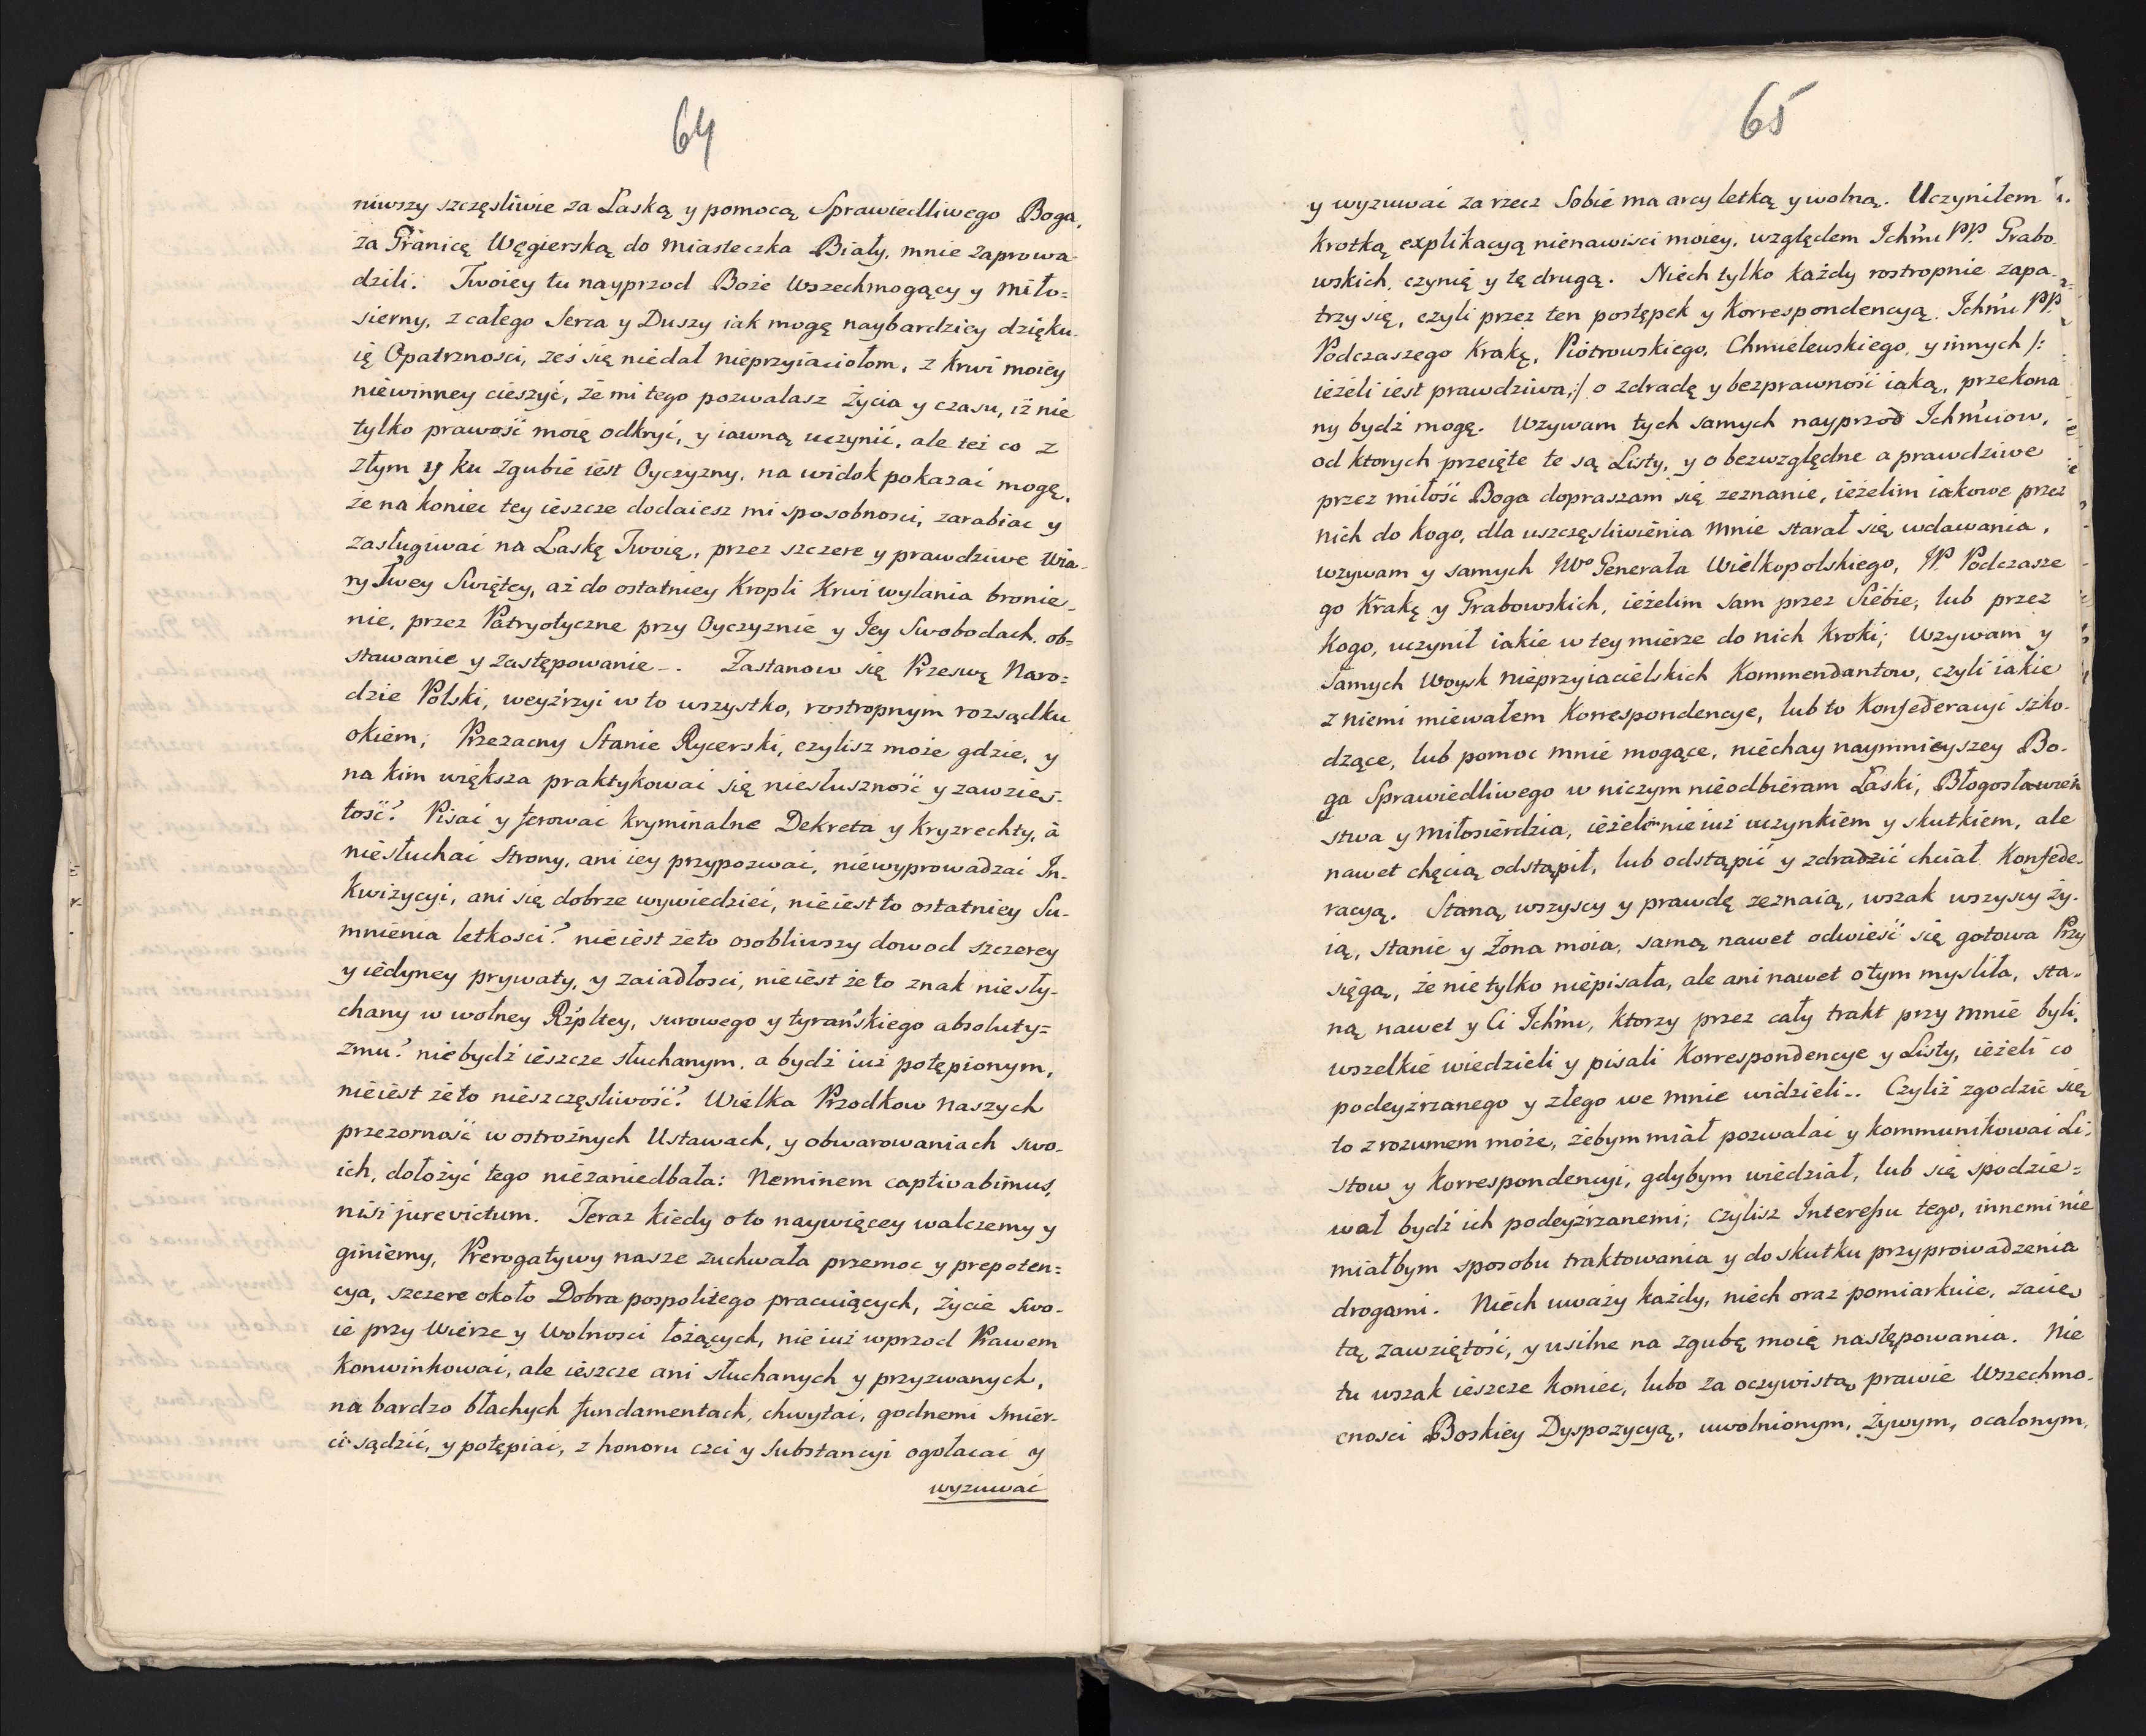 64
niwszy szczęsliwie za Laską y pomocą Sprawiedliwego Boga,
za Granicę Węgierską do Miasteczka Biały, mnie zaprowa-
dzili. Twoiey tu nayprzod Boże Wszechmogący y Miło=
sierny, z całego Serca y Duszy iak mogę naybardziey dzięku-
ię Opatrznosci, żeś się niedał nieprzyiaciołom, z krwi moiey
niewinney cieszyć, że mi tego pozwalasz Życia y czasu, iż nie
tylko prawość moię odkryć, y iawną uczynić, ale też co z
złym y ku zgubie iest Oyczyzny, na widok pokazać mogę,
że na koniec tey ieszcze dodaiesz mi sposobnosci, zarabiać y
zasługiwać na Laskę Twoię, przez szczere y prawdziwe Wia-
ry Twey Swiętey, aż do ostatniey Kropli Krwi wylania bronie-
nie, przez Patryotyczne przy Oyczyznie y Jey Swobodach, ob=
stawanie y zastępowanie -. Zastanow się Przeswę Naro=
dzie Polski, weyźrzyi w to wszystko, rostropnym rozsądku
okiem, Przezacny Stanie Rycerski, czylisz może gdzie, y
na kim większa praktykować się niesłuszność y zawzięs-
tość? Pisać y ferować kryminalne Dekreta y Kryzrechty, à
niesłuchać Strony, ani iey przypozwać, niewyprowadzać In-
kwizycyi, ani się dobrze wywiedzieć, nieiest to ostatniey Su-
mnienia letkosci? nieiest że to osobliwszy dowod szczerey
y iedyney prywaty, y zaiadłosci, nieiest że to znak niesły-
chany w wolney Rzpltey, surowego y tyrańskiego absoluty=
zmu? niebydź ieszcze słuchanym, a bydź iuż potępionym,
nieiest że to nieszczęsliwość? Wielka Przodkow Naszych
przezorność w ostrożnych Ustawach, y obwarowaniach swo-
ich, dołożyć tego niezaniedbała: Neminem captivabimus,
nisi jurevictum. Teraz kiedy o to naywięcey walczemy y
giniemy, Prerogatywy nasze zuchwała przemoc y prepoten=
cya, szczere około Dobra pospolitego pracuiących, Życie swo-
ie przy Wierze y Wolnosci łożących, nie iuż wprzod Prawem
Konwinkować, ale ieszcze ani słuchanych y przyzwanych,
na bardzo błachych fundamentach, chwytać, godnemi smier-
ci sądzić, y potępiać, z honoru czci y Substancyi ogołacać y
wyzuwać
65
y wyzuwać za rzecz Sobie ma arcy letką y wolną. Uczyniłem
krotką explikacyą nienawisci moiey, względem Ichmć PP. Grabo-
wskich, czynię y tę drugą. Niech tylko każdy rostropnie zapa-
trzy się, czyli przez ten postępek y Korrespondencyą Ichmć PP.
Podczaszego Krakę, Piotrowskiego, Chmielewskiego, y innych /:
ieżeli iest prawdziwa,:/ o zdradę y bezprawność iaką, przekona
ny bydź mogę. Wzywam tych samych nayprzod Ichmciow,
od ktorych przeięte te są Listy, y o bezwzględne a prawdziwe
przez miłość Boga dopraszam się zeznanie, ieżelim iakowe przez
nich do kogo, dla uszczęsliwienia mnie starał się wdawania,
wzywam y samych Wo Generała Wielkopolskiego, W. Podczasze
go Krakę y Grabowskich, ieżelim sam przez Siebie, lub przez
Kogo, uczynił iakie w tey mierze do nich Kroki; Wzywam y
Samych Woysk nieprzyiacielskich Kommendantow, czyli iakie
z niemi miewałem Korrespondencye, lub to Konfederacyi szko-
dzące, lub pomoc mnie mogące, niechay naymnieyszey Bo-
ga Sprawiedliwego w niczym nieodbieram Łaski, Błogosławień
stwa y Miłosierdzia, ieżelim nie iuż uczynkiem y skutkiem, ale
nawet chęcią odstąpił, lub odstąpić y zdradzić chciał Konfede-
racyą. Staną wszyscy y prawdę zeznaią, wszak wszyscy ży-
ią, stanie y Żona moia, samą nawet odwieść się gotowa Przy
sięgą, że nie tylko niepisała, ale ani nawet o tym mysliła, sta-
ną nawet y Ci Ichmć, ktorzy przez cały trakt przy mnie byli,
wszelkie wiedzieli y pisali Korrespondencye y Listy, ieżeli co
podeyźrzanego y złego we mnie widzieli -. Czyliż zgodzić się
to z rozumem może, żebym miał pozwalać y kommunikować Li-
stow y Korrespondencyi, gdybym wiedział, lub się spodzie=
wał bydź ich podeyźrzanemi; czylisz Interessu tego, innemi nie
miałbym sposobu traktowania y do skutku przyprowadzenia
drogami. Niech uważy każdy, niech oraz pomiarkuie, zacie-
tą, zawziętość, y usilne na zgubę moię następowania. Nie
tu wszak ieszcze koniec, lubo za oczywistą prawie Wszechmo-
cnosci Boskiey Dyspozycyą, uwolnionym, żywym, ocalonym,